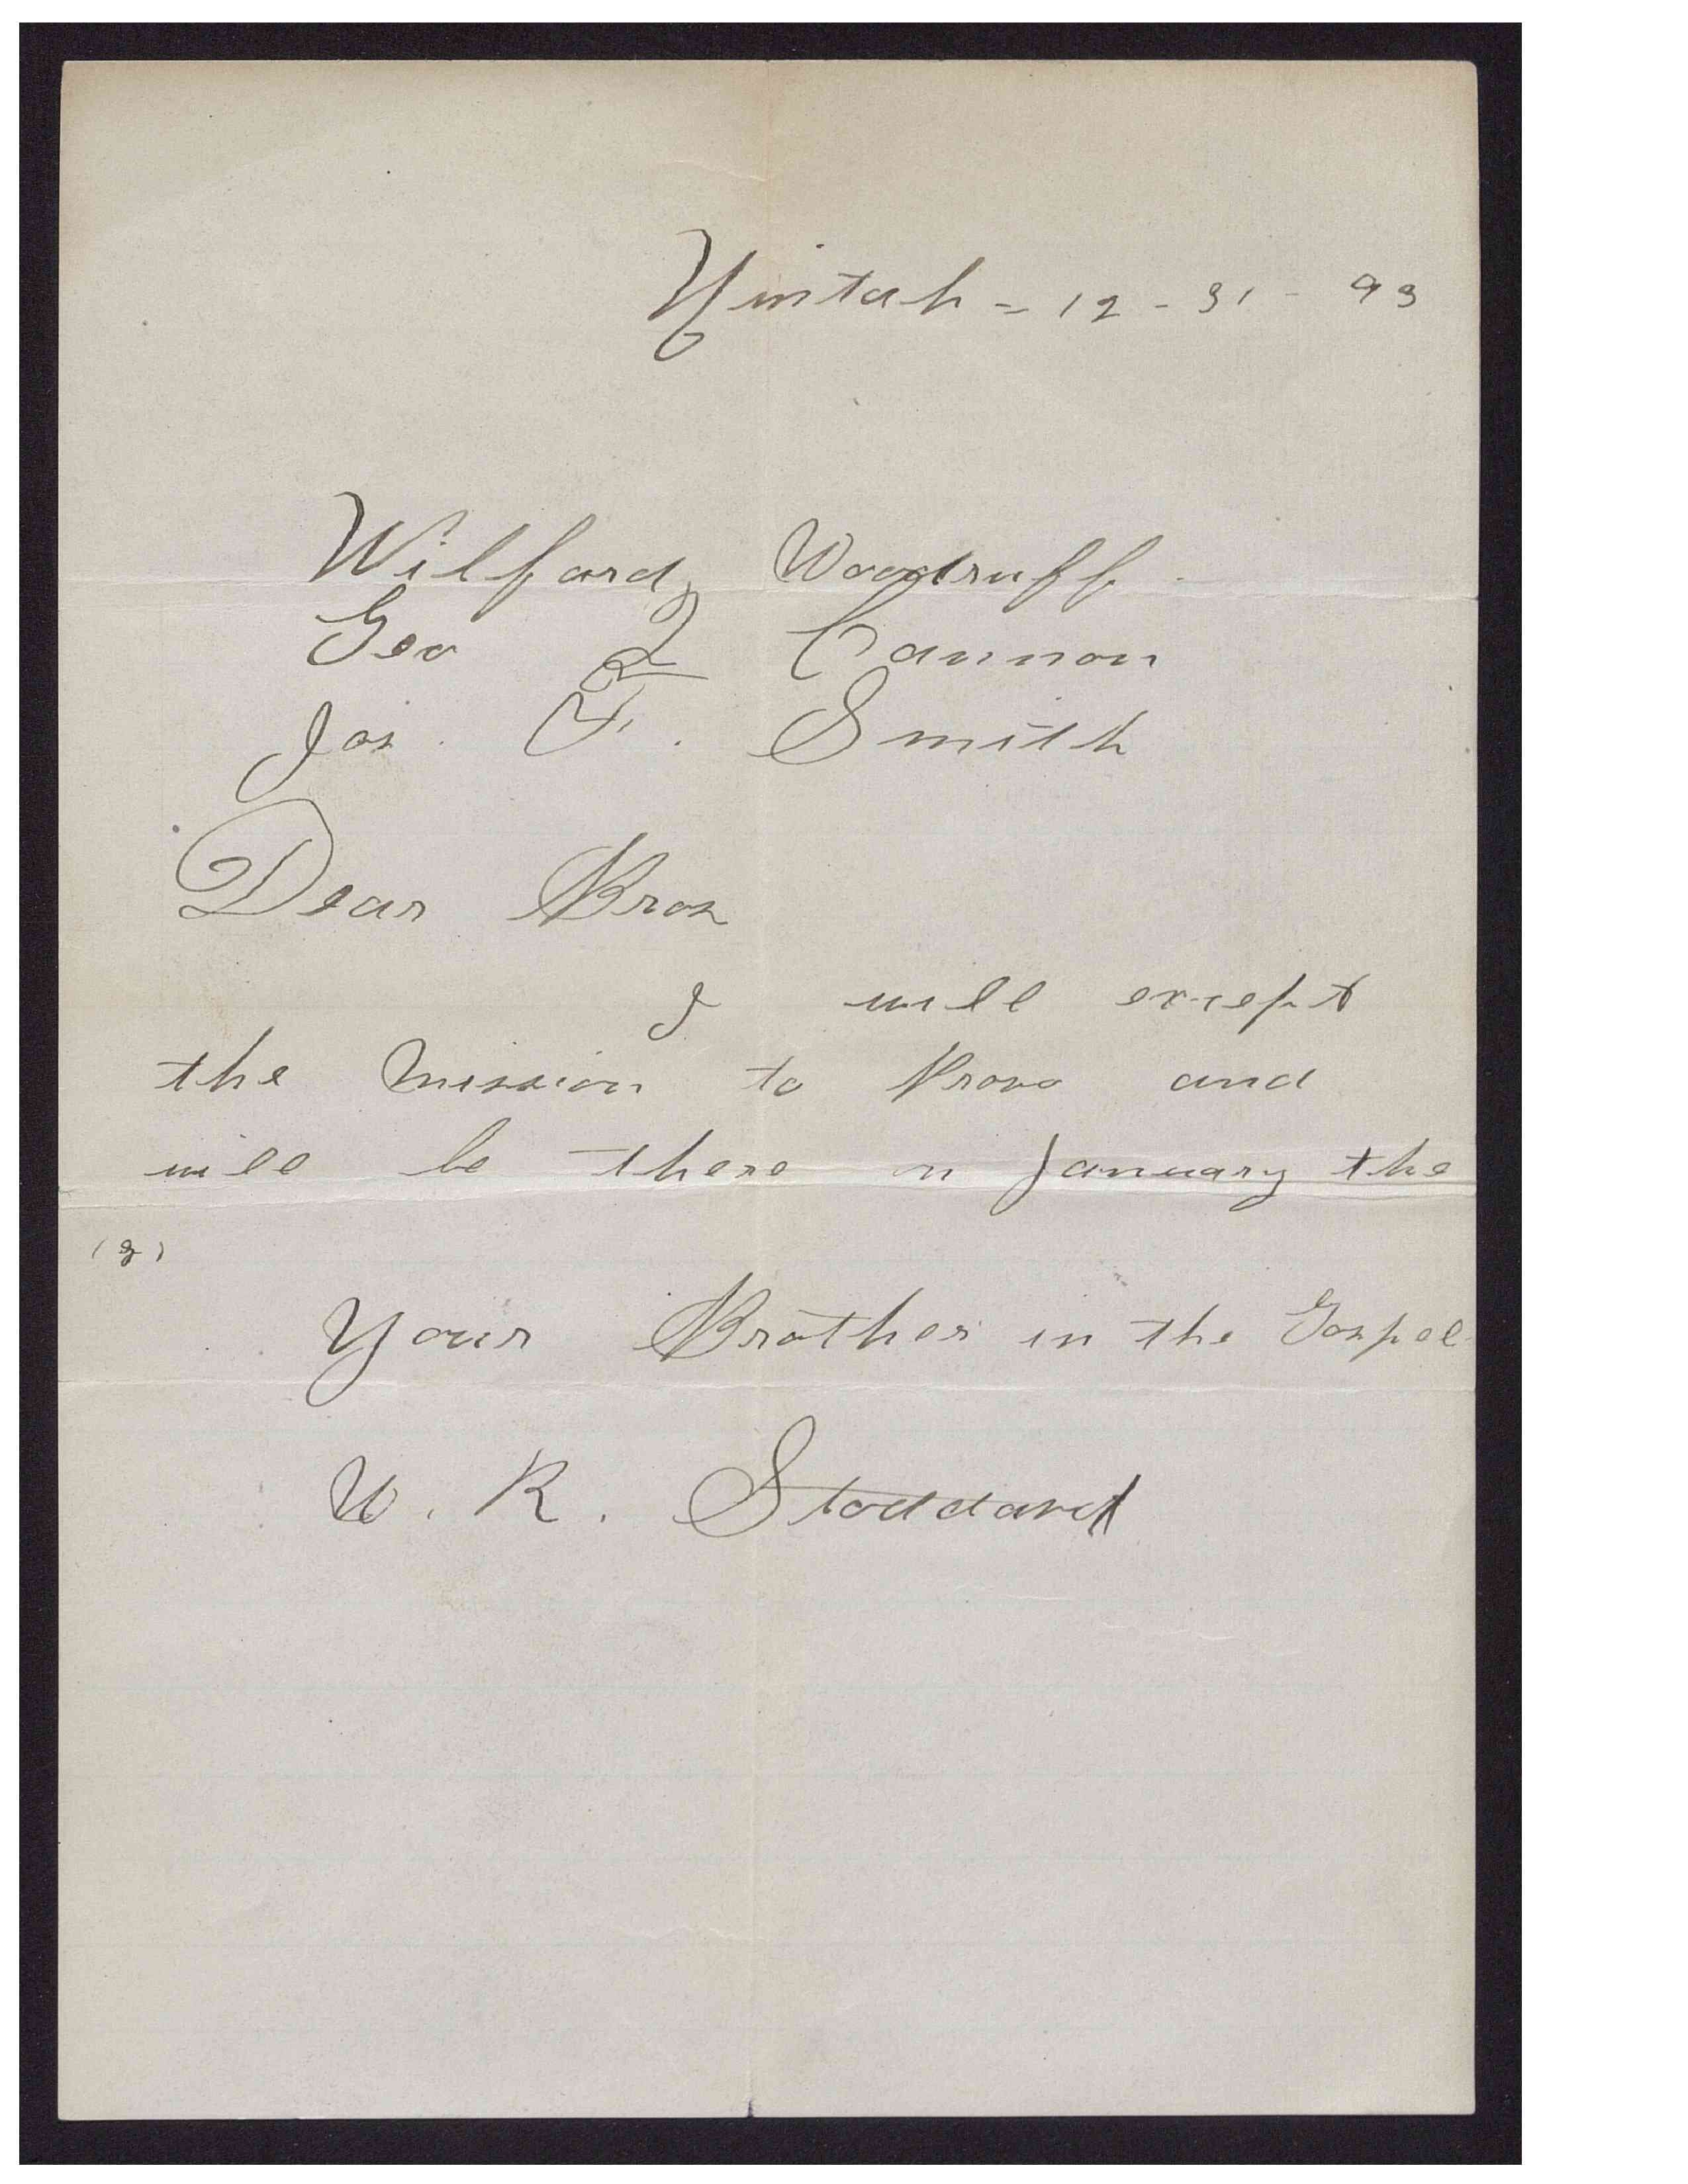 Uintah - 12 - 31 - 93
Wilford Woodruff.
Geo Q Cannon
Jos. F. Smith
Dear Bros
I will except
the Mission to Provo and
will be there on January the
(3)
Your Brother in the Gospel
W. R. Stoddard